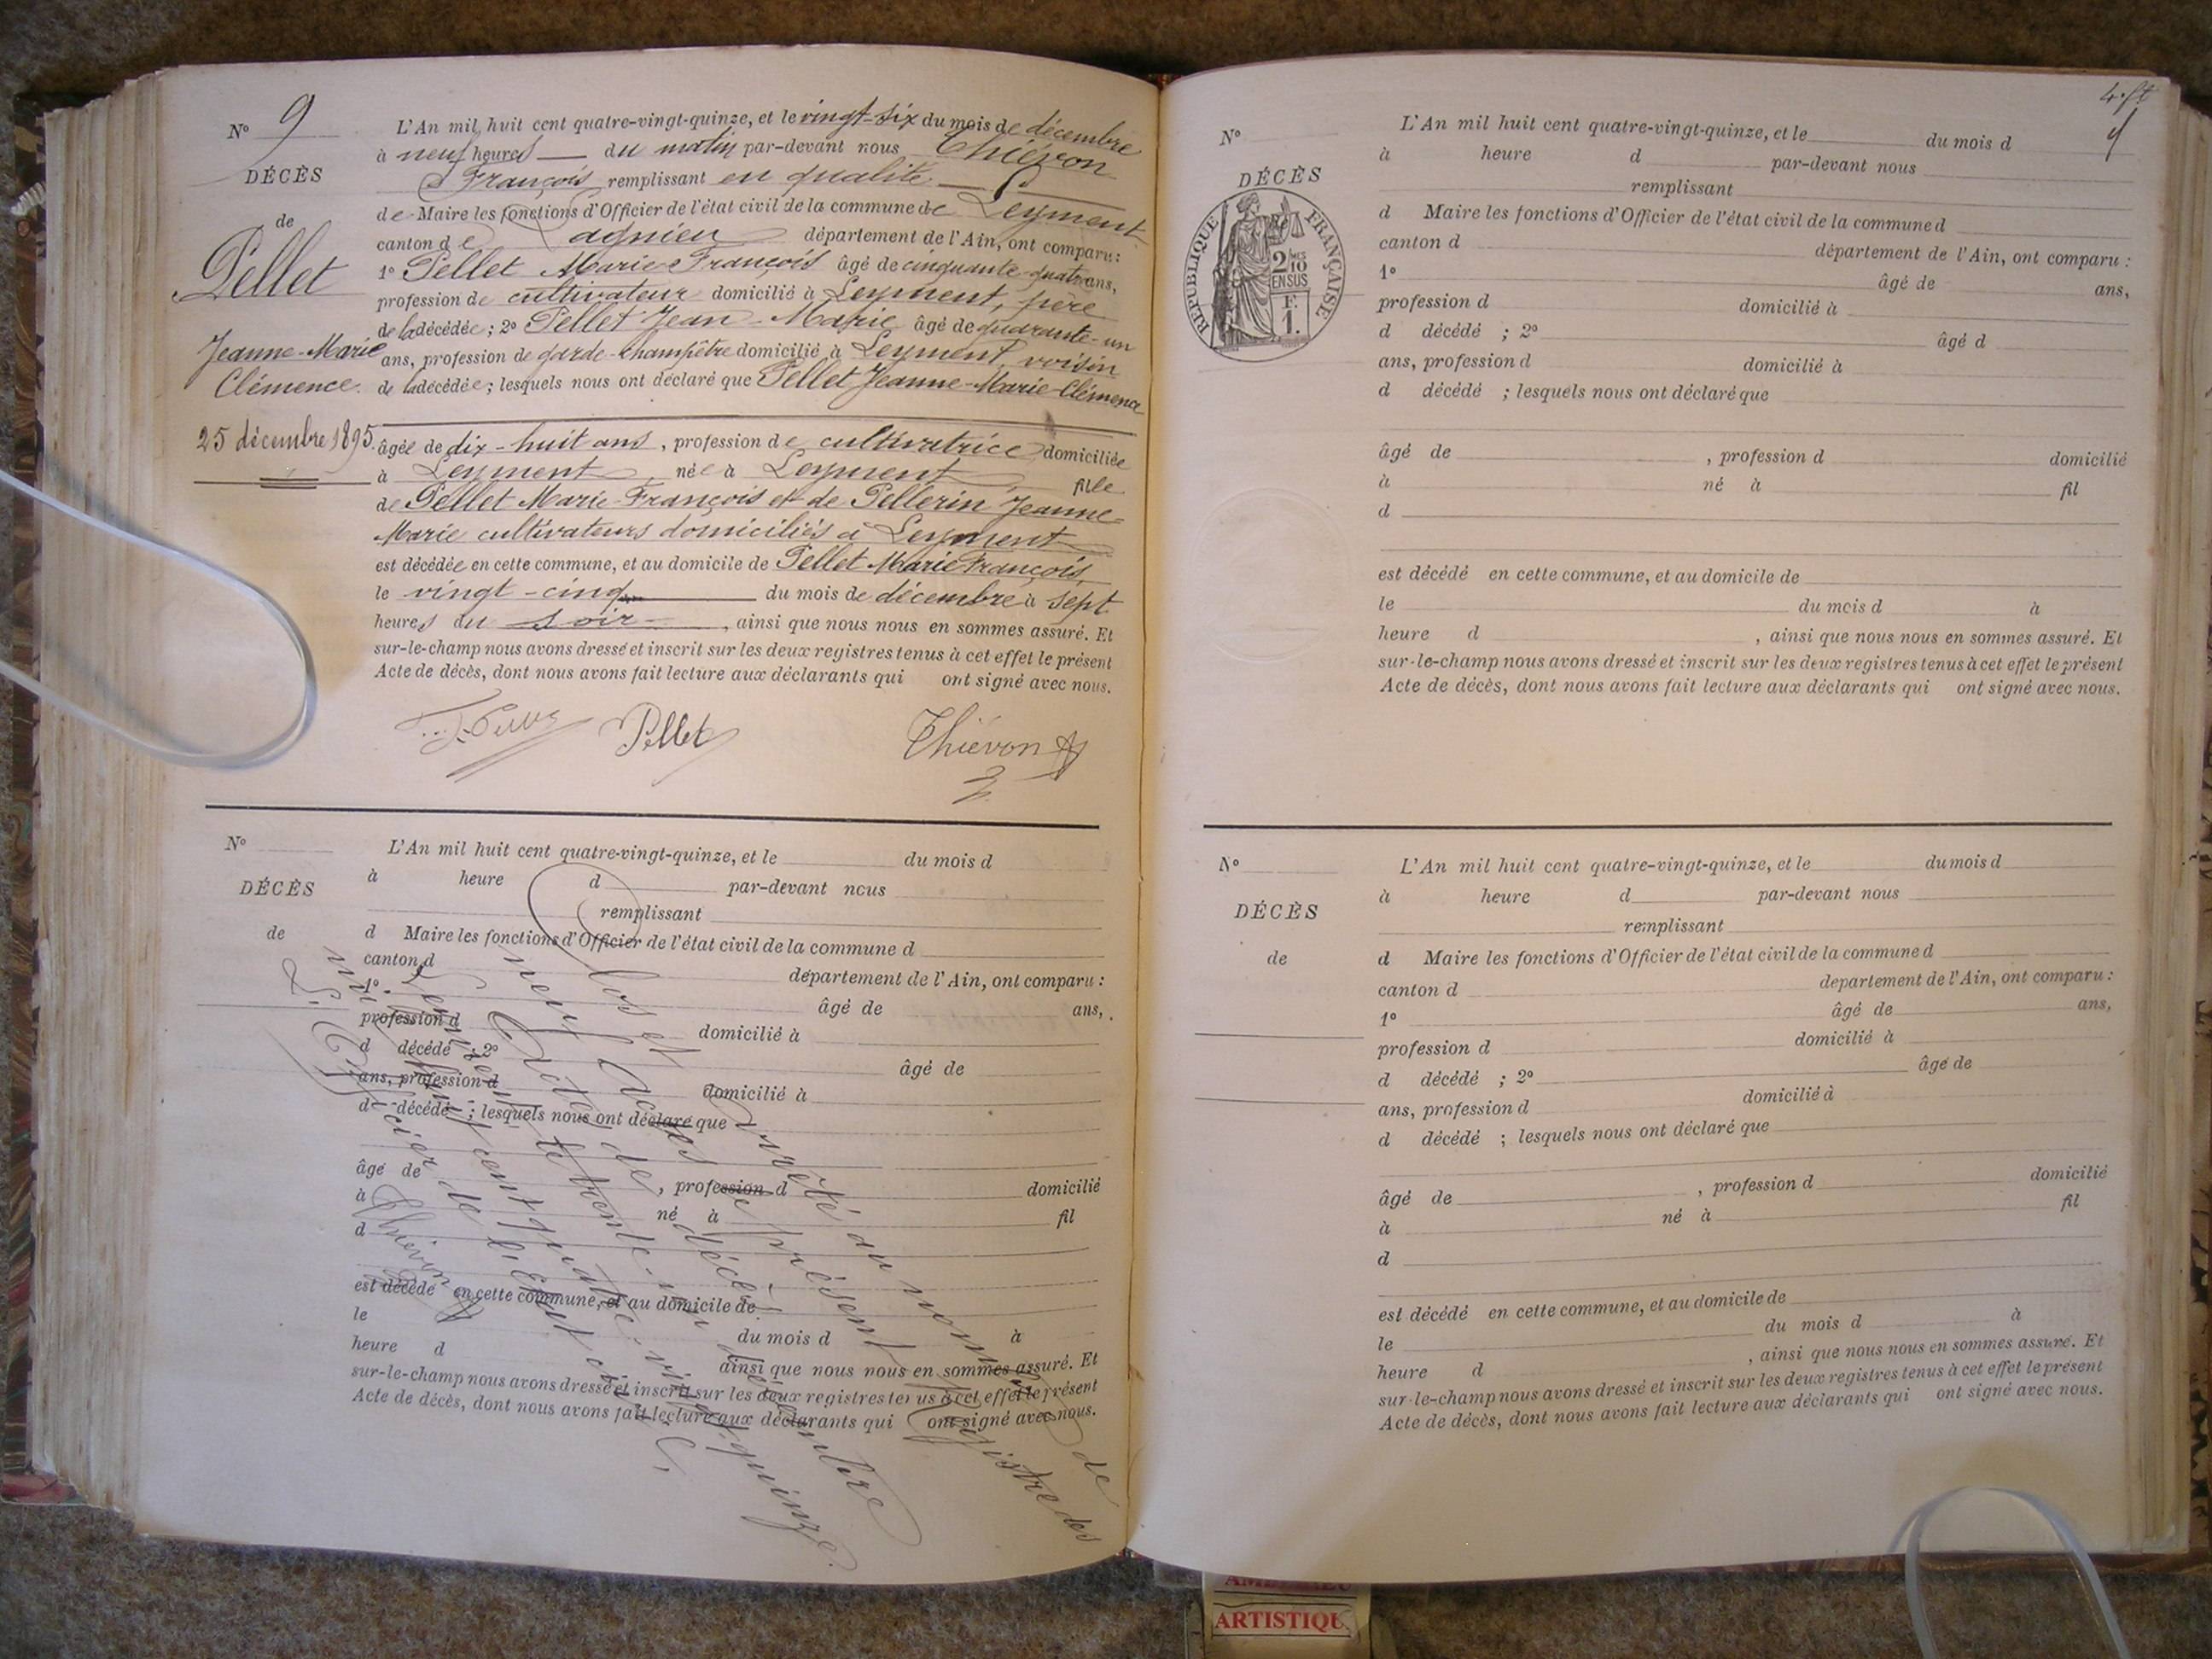 N° 9
DÉCÈS
de
Pellet
Jeanne-Marie
Clémence.
25 décembre 1895.
L'An mil huit cent quatre-vingt-quinze, et le vingt-six du mois de décembre
à neuf heures du matin par-devant nous Thiévon
François remplissant en qualité
de Maire les fonctions d'Officier de l'état civil de la commune de Leyment
canton de Lagnieu département de l'Ain, ont comparu :
1° Pellet Marie-François âgé de cinquante-quatre ans,
profession de cultivateur domicilié à Leyment, père
de la décédée ; 2° Pellet Jean-Marie âgé de quarante-un
ans, profession de garde-champêtre domicilié à Leyment, voisin
de la décédée ; lesquels nous ont déclaré que Pellet Jeanne-Marie-Clémence
âgée de dix-huit ans, profession de cultivatrice domiciliée
à Leyment, née à Leyment fille
de Pellet Marie-François et de Pellerin Jeanne-
Marie cultivateurs domiciliés à Leyment
est décédée en cette commune, et au domicile de Pellet Marie François,
le vingt-cinq du mois de décembre à sept
heures du soir, ainsi que nous nous en sommes assuré. Et
sur-le-champ nous avons dressé et inscrit sur les deux registres tenus à cet effet le présent
Acte de décès, dont nous avons fait lecture aux déclarants qui ont signé avec nous.
Pellet Thiévon
N°
DÉCÈS
de
L'An mil huit cent quatre-vingt-quinze, et le du mois d
à heure d par-devant nous
remplissant
d Maire les fonctions d'Officier de l'état civil de la commune d
canton d département de l'Ain, ont comparu :
1° âgé de ans,
profession d domicilié à
d décédé ; 2° âgé de
ans, profession d domicilié à
d décédé ; lesquels nous ont déclaré que
âgé de , profession d domicilié
à né à fil
d
est décédé en cette commune, et au domicile de
le du mois d à
heure d ainsi que nous nous en sommes assuré. Et
sur-le-champ nous avons dressé et inscrit sur les deux registres tenus à cet effet le présent
Acte de décès, dont nous avons fait lecture aux déclarants qui ont signé avec nous.
Clos et arrêté au nombre de
neuf Actes le présent Registre des
Actes de décès.
Leyment le trente-un décembre
mil huit cent quatre-vingt-quinze.
L'Officier de l'Etat civil,
Thiévon
N°
DÉCÈS
RÉPUBLIQUE FRANÇAISE
2 10
EN SUS
F.
1.
L'An mil huit cent quatre-vingt-quinze, et le du mois d
à heure d par-devant nous
remplissant
d Maire les fonctions d'Officier de l'état civil de la commune d
canton d département de l'Ain, ont comparu :
1° âgé de ans,
profession d domicilié à
d décédé ; 2° âgé d
ans, profession d domicilié à
d décédé ; lesquels nous ont déclaré que
âgé de , profession d domicilié
à né à fil
d
est décédé en cette commune, et au domicile de
le du mois d à
heure d , ainsi que nous nous en sommes assuré. Et
sur-le-champ nous avons dressé et inscrit sur les deux registres tenus à cet effet le présent
Acte de décès, dont nous avons fait lecture aux déclarants qui ont signé avec nous.
N°
DÉCÈS
de
L'An mil huit cent quatre-vingt-quinze, et le du mois d
à heure d par-devant nous
remplissant
d Maire les fonctions d'Officier de l'état civil de la commune d
canton d département de l'Ain, ont comparu :
1° âgé de ans,
profession d domicilié à
d décédé ; 2° âgé de
ans, profession d domicilié à
d décédé ; lesquels nous ont déclaré que
âgé de , profession d domicilié
à né à fil
d
est décédé en cette commune, et au domicile de
le du mois d à
heure d , ainsi que nous nous en sommes assuré. Et
sur-le-champ nous avons dressé et inscrit sur les deux registres tenus à cet effet le présent
Acte de décès, dont nous avons fait lecture aux déclarants qui ont signé avec nous.
ARTISTIQU